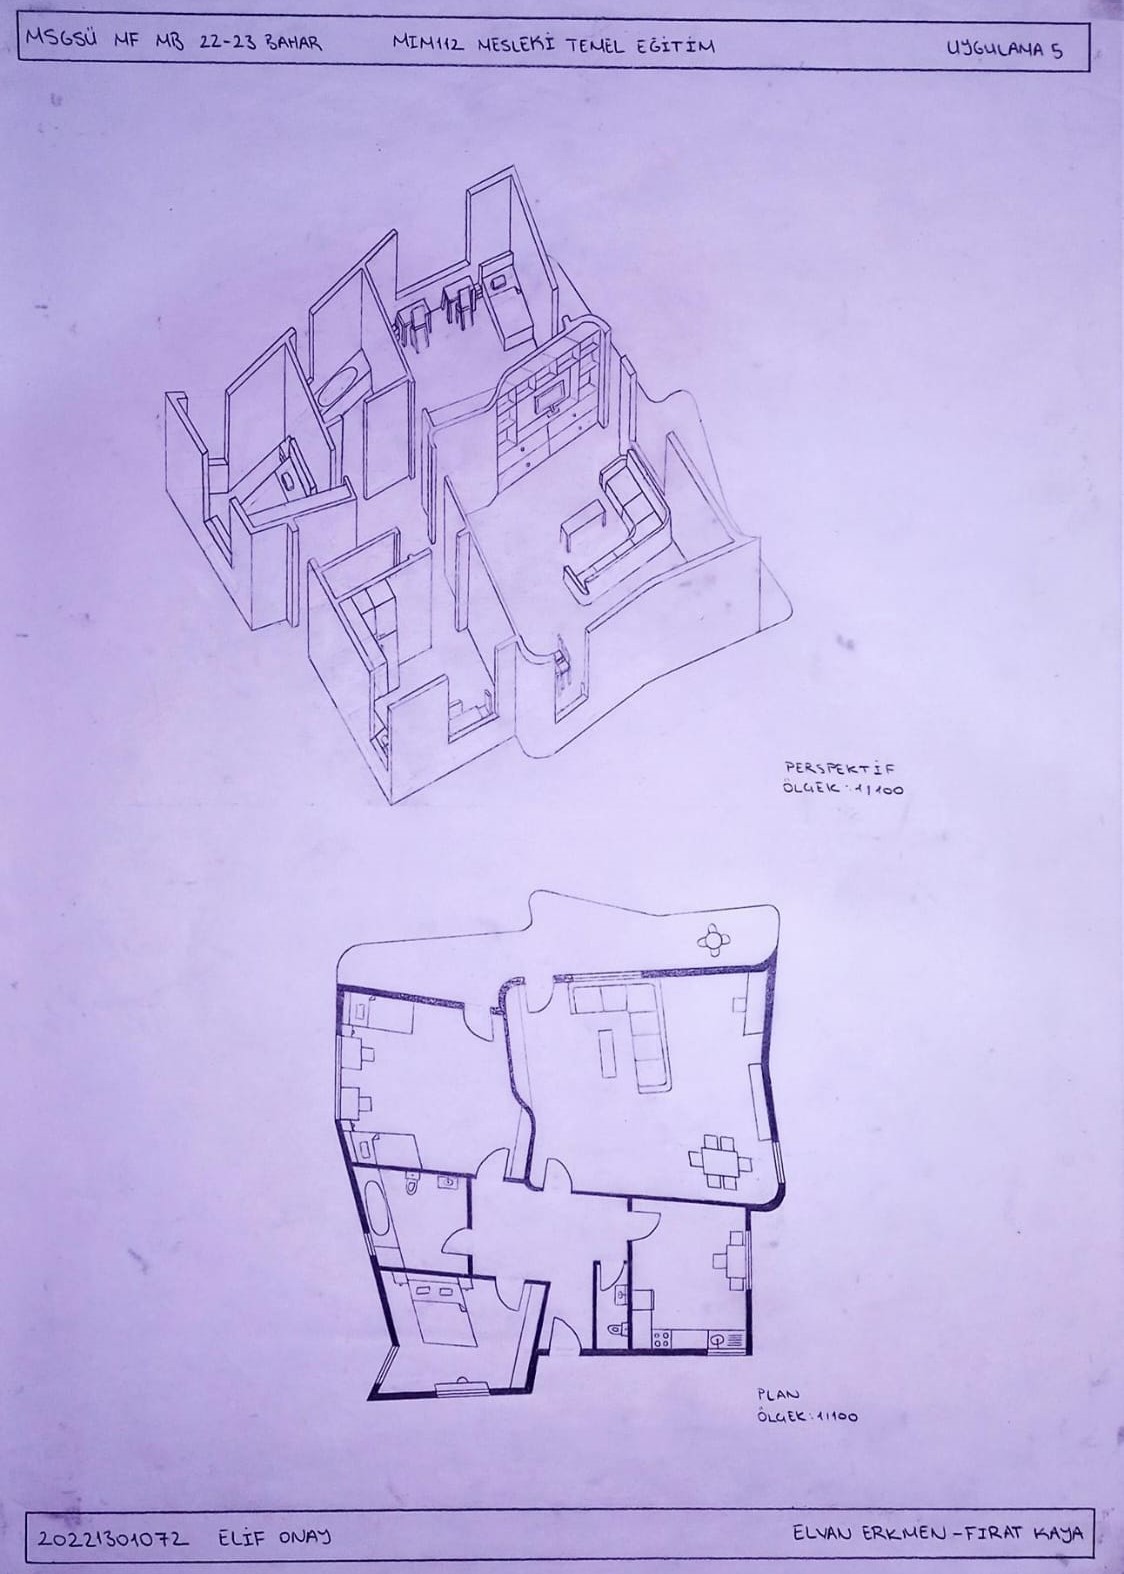 MSGSÜ MF MB 22-23 BAHAR MIM112 MESLEKİ TEMEL EĞİTİM UYGULAMA 5
PERSPEKTİF
ÖLÇEK: 1/100
PLAN
ÖLÇEK: 1/100
20221301072 ELİF ONAY ELVAN ERKMEN-FIRAT KAYA